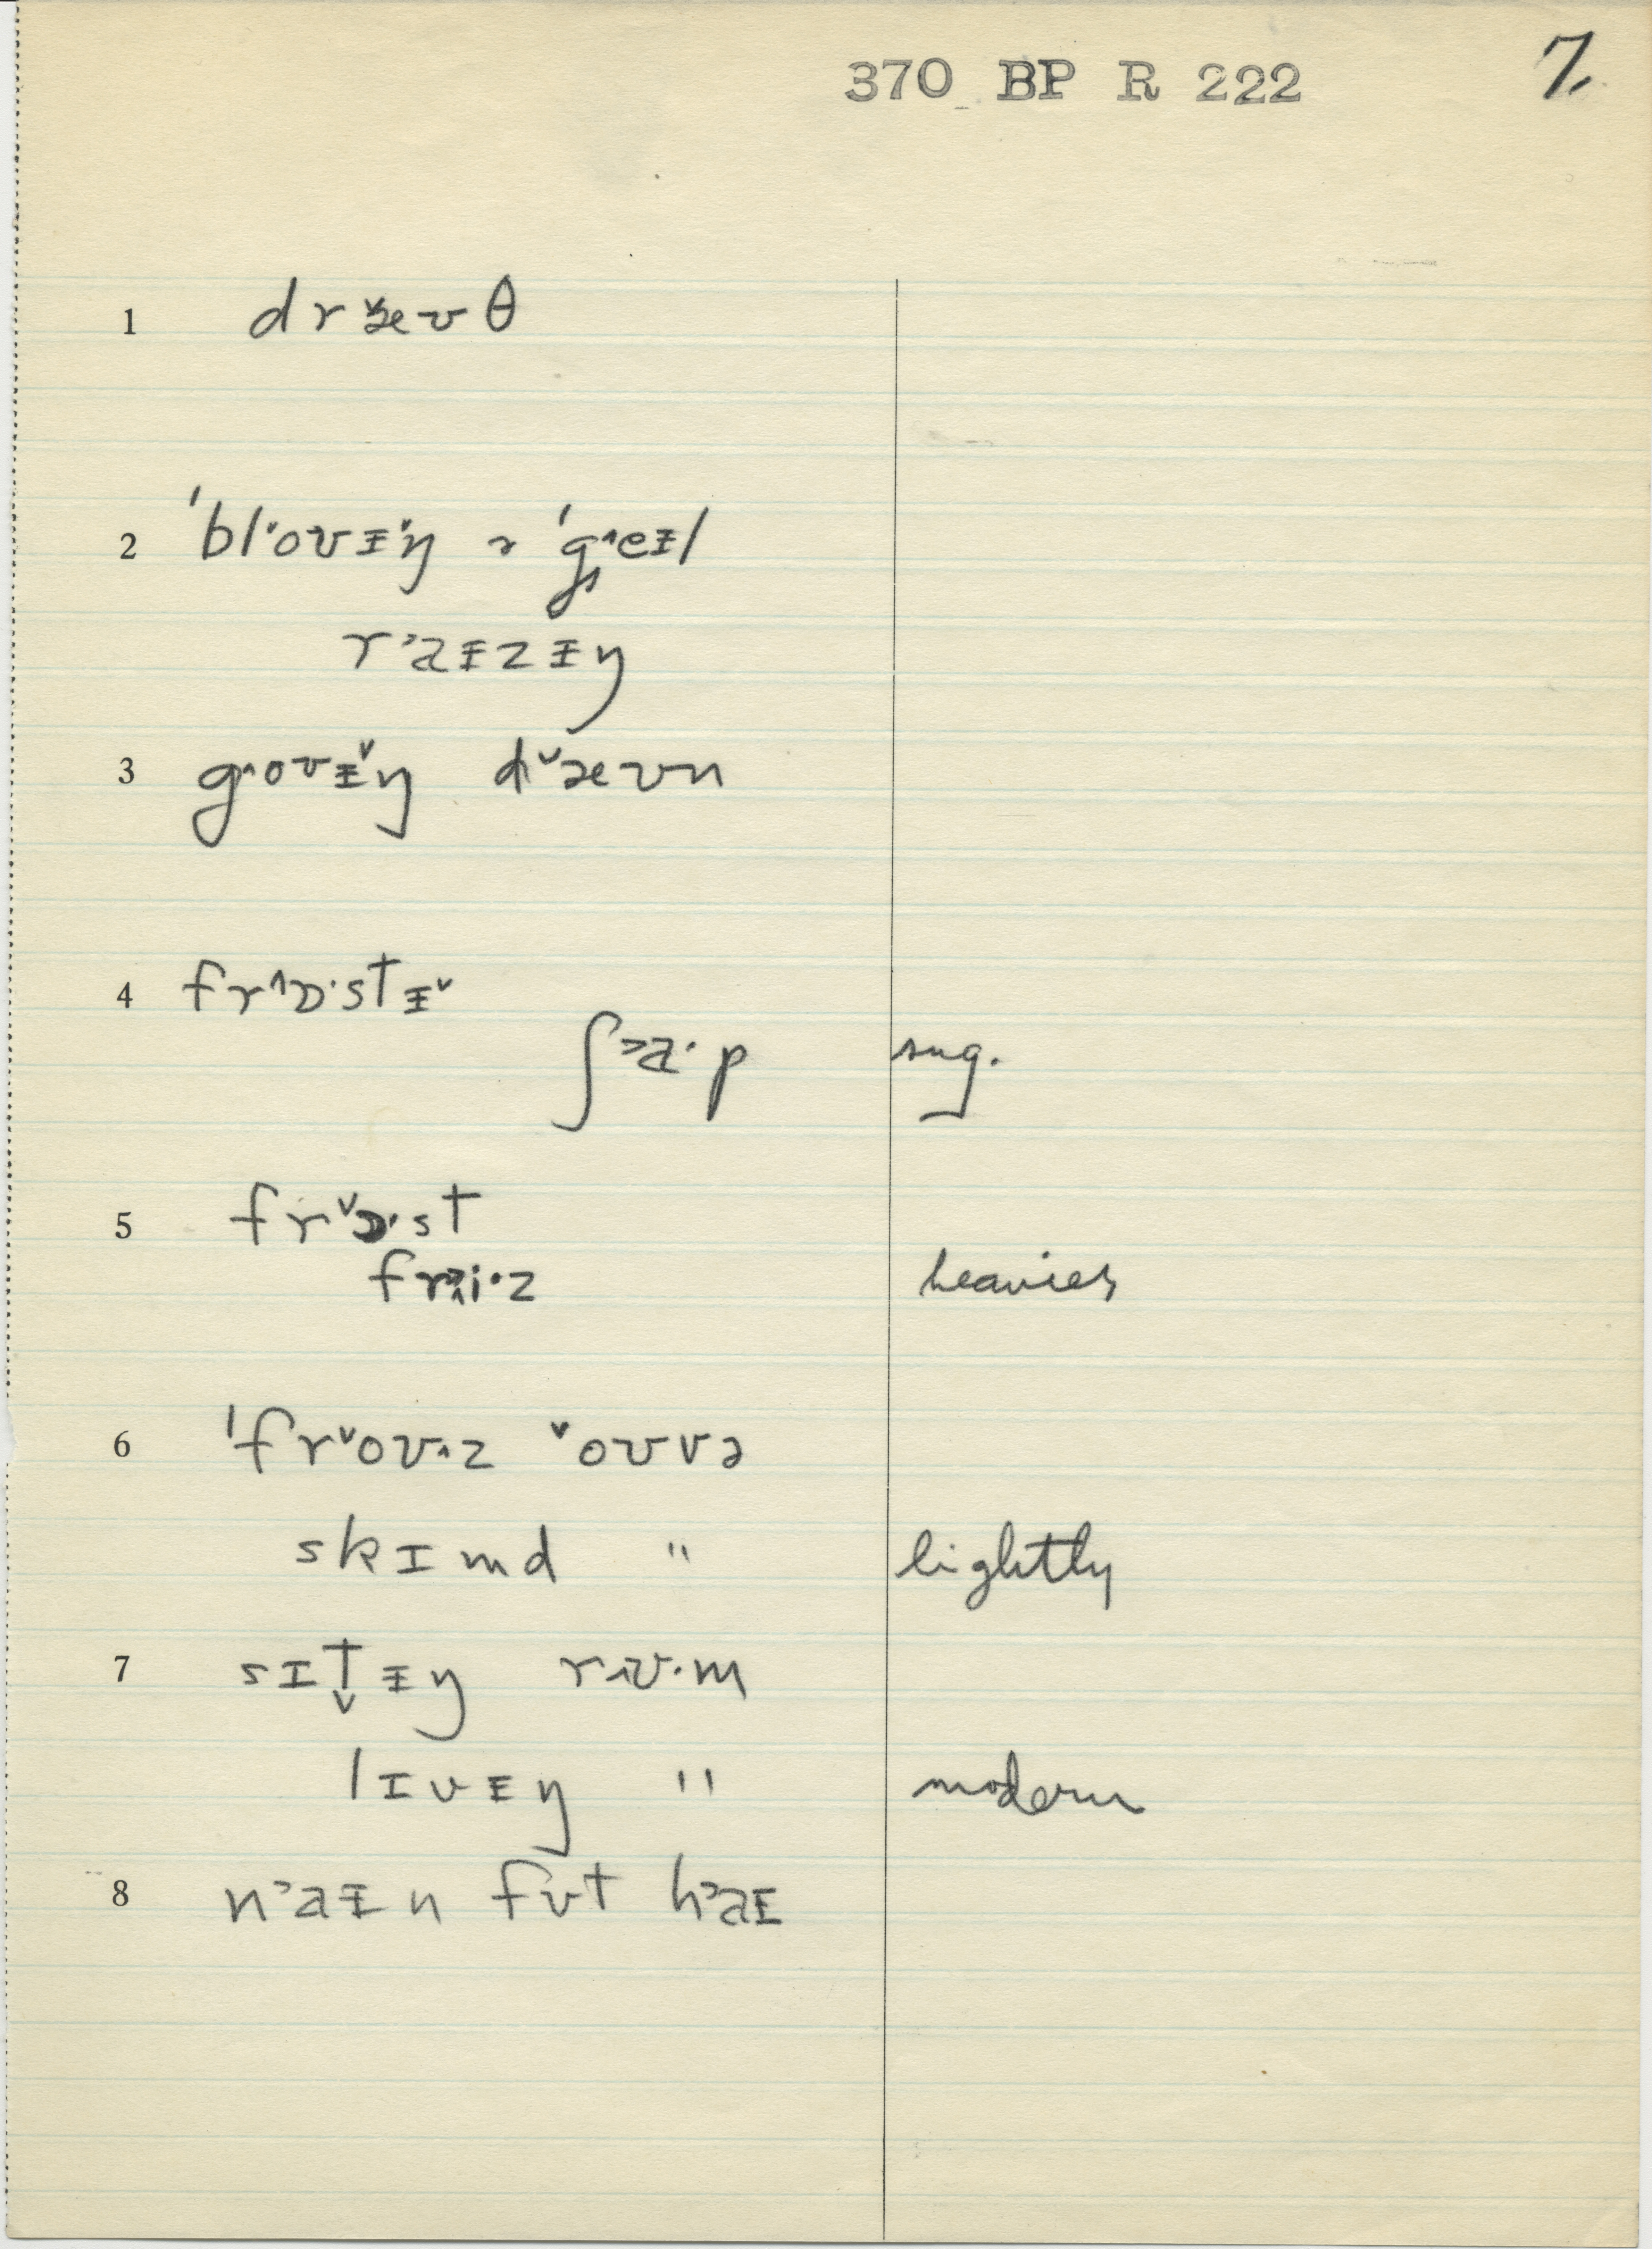 370 BP R 222 7
1 dr˅æʊθ
2 ˈbl˂oʊɨ˅ŋ ə ˈg˄eɨl
r˃aɨzɨŋ
3 g˄oʊɨ˅ŋ d˅æʊn
4 fr˄ɒ·stɨ˅
ʃ˃a·p sug.
5 fr˅ɒ·st
fri·z heavier
6 ˈfr˅oʊz ˅oʊvə
skɪmd " lightly
7 sɪt̬ɨŋ rʊ·m
lɪvɨŋ " modern
8 n˃aɨn fʊt h˃aɪ